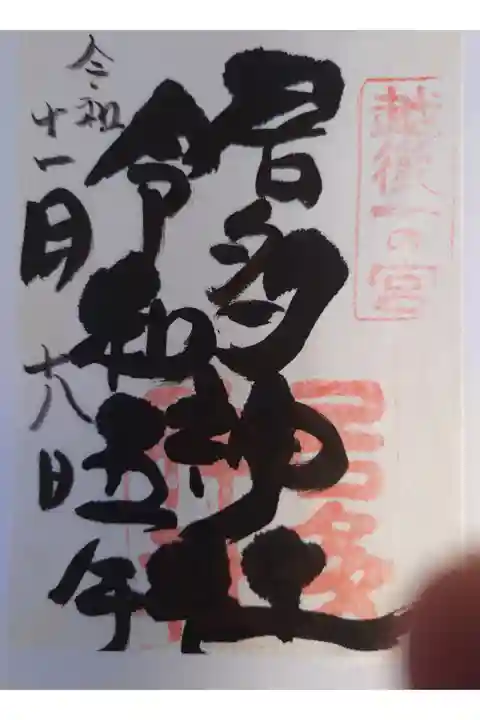 越後一の宮
居多神社
令和五年
令和
十一月十八日
居多